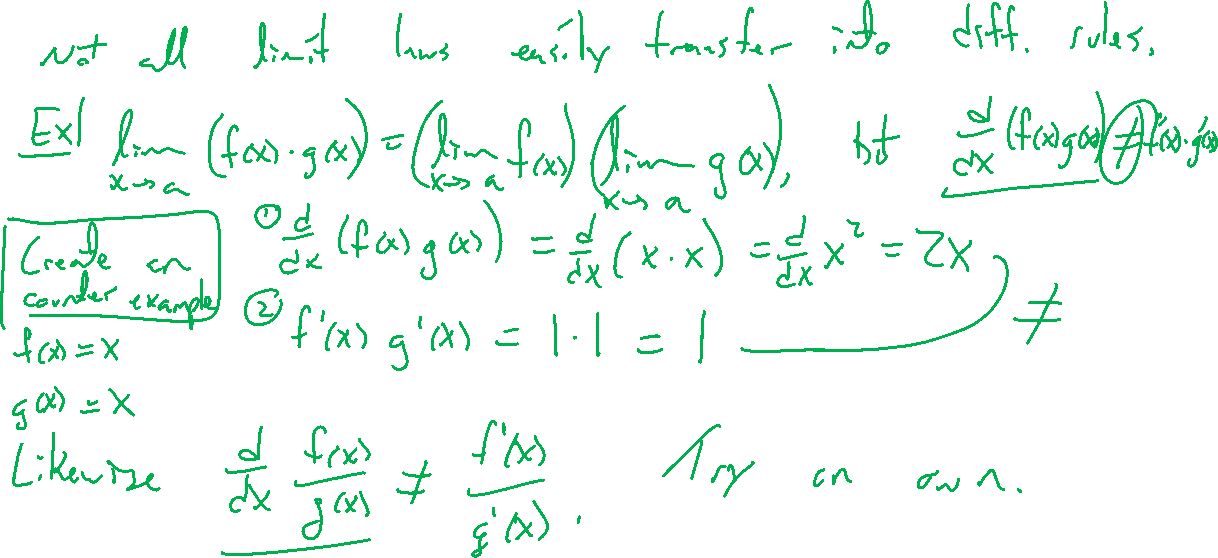 Not all limit laws easily transfer into diff. rules.
Ex| lim x→a (f(x)·g(x)) = (lim x→a f(x)) (lim x→a g(x)), but d/dx (f(x)g(x)) ≠ f'(x)·g'(x)
Create an counter example
① d/dx (f(x)g(x)) = d/dx (x·x) = d/dx x² = 2x
② f'(x) g'(x) = 1·1 = 1 ≠
f(x) = x
g(x) = x
Likewise d/dx f(x)/g(x) ≠ f'(x)/g'(x). Try on own.